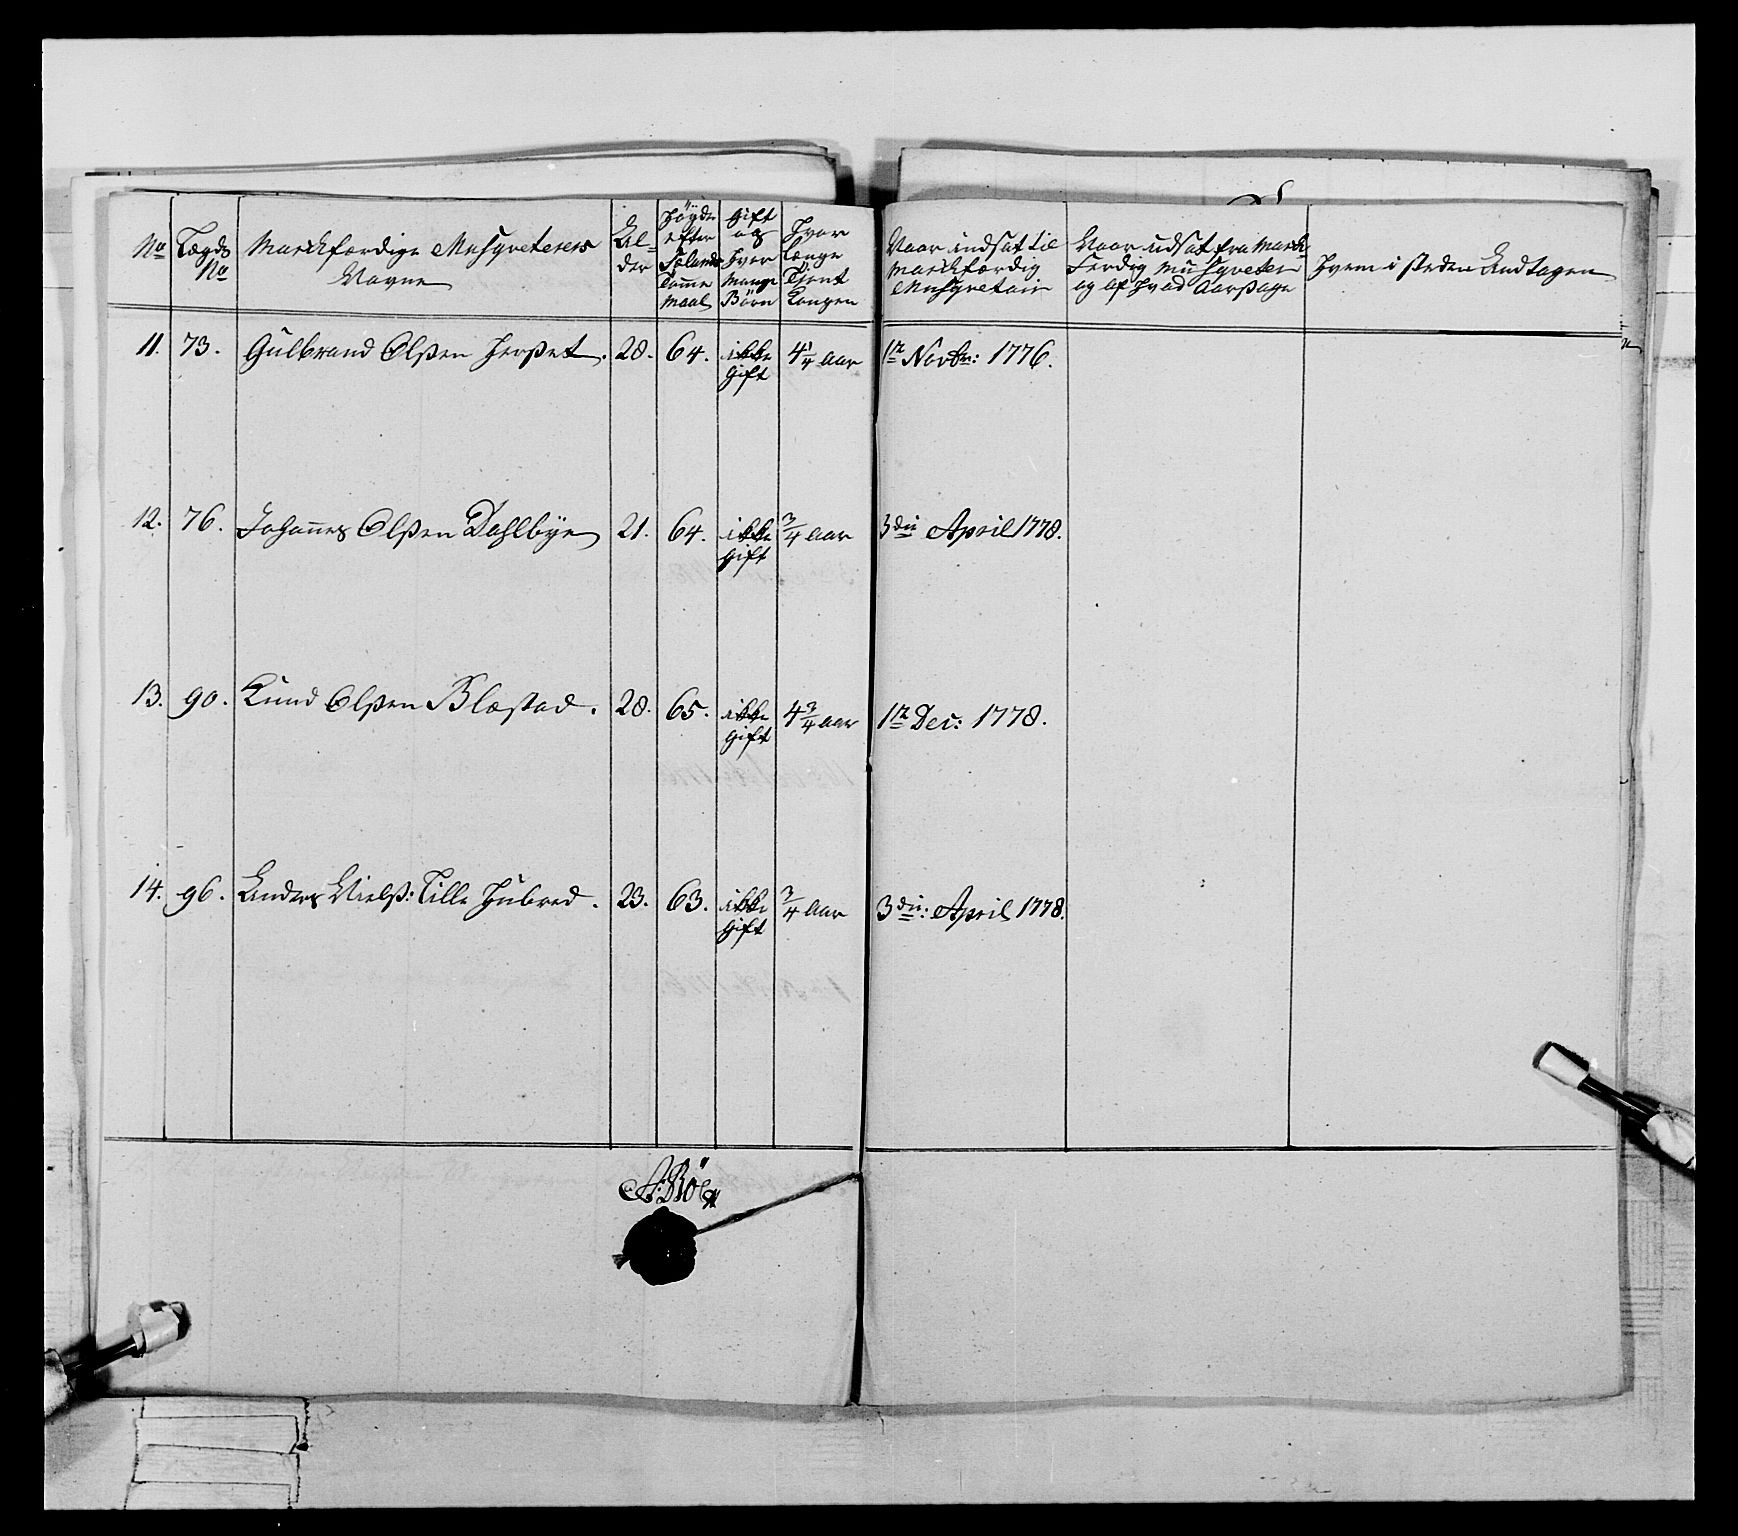 No
Lægds
No
Marchfærdige Musqveterers
Navne
Al-
der
Höyde
efter
Sælands
Tomme
Maal
Gift
og
hvor
mange
Börn
Hvor
længe
Tient
Kongen
Naar indsat til
marchfærdig
Musqveteir
Naar udsat fra March-
Ferdig Musqveteer
og af hvad Aarsage
Hvem i steden Andtagen
11. 73. Gulbrand Olßen Herßet. 28. 64. ikke Gift 4 1/4 Aar 1te Novbr: 1776.
12. 76. Johannes Olßen Dahlbye 21. 64. ikke Gift 3/4 Aar 3die April 1778.
13. 90. Knud Olßen Blæstad. 28. 65. ikke Gift 4 3/4 Aar 1te Dec: 1778.
14. 96. Anders Nielß: Lille Hubred. 23. 63. ikke Gift 3/4 Aar 3die: April 1778.